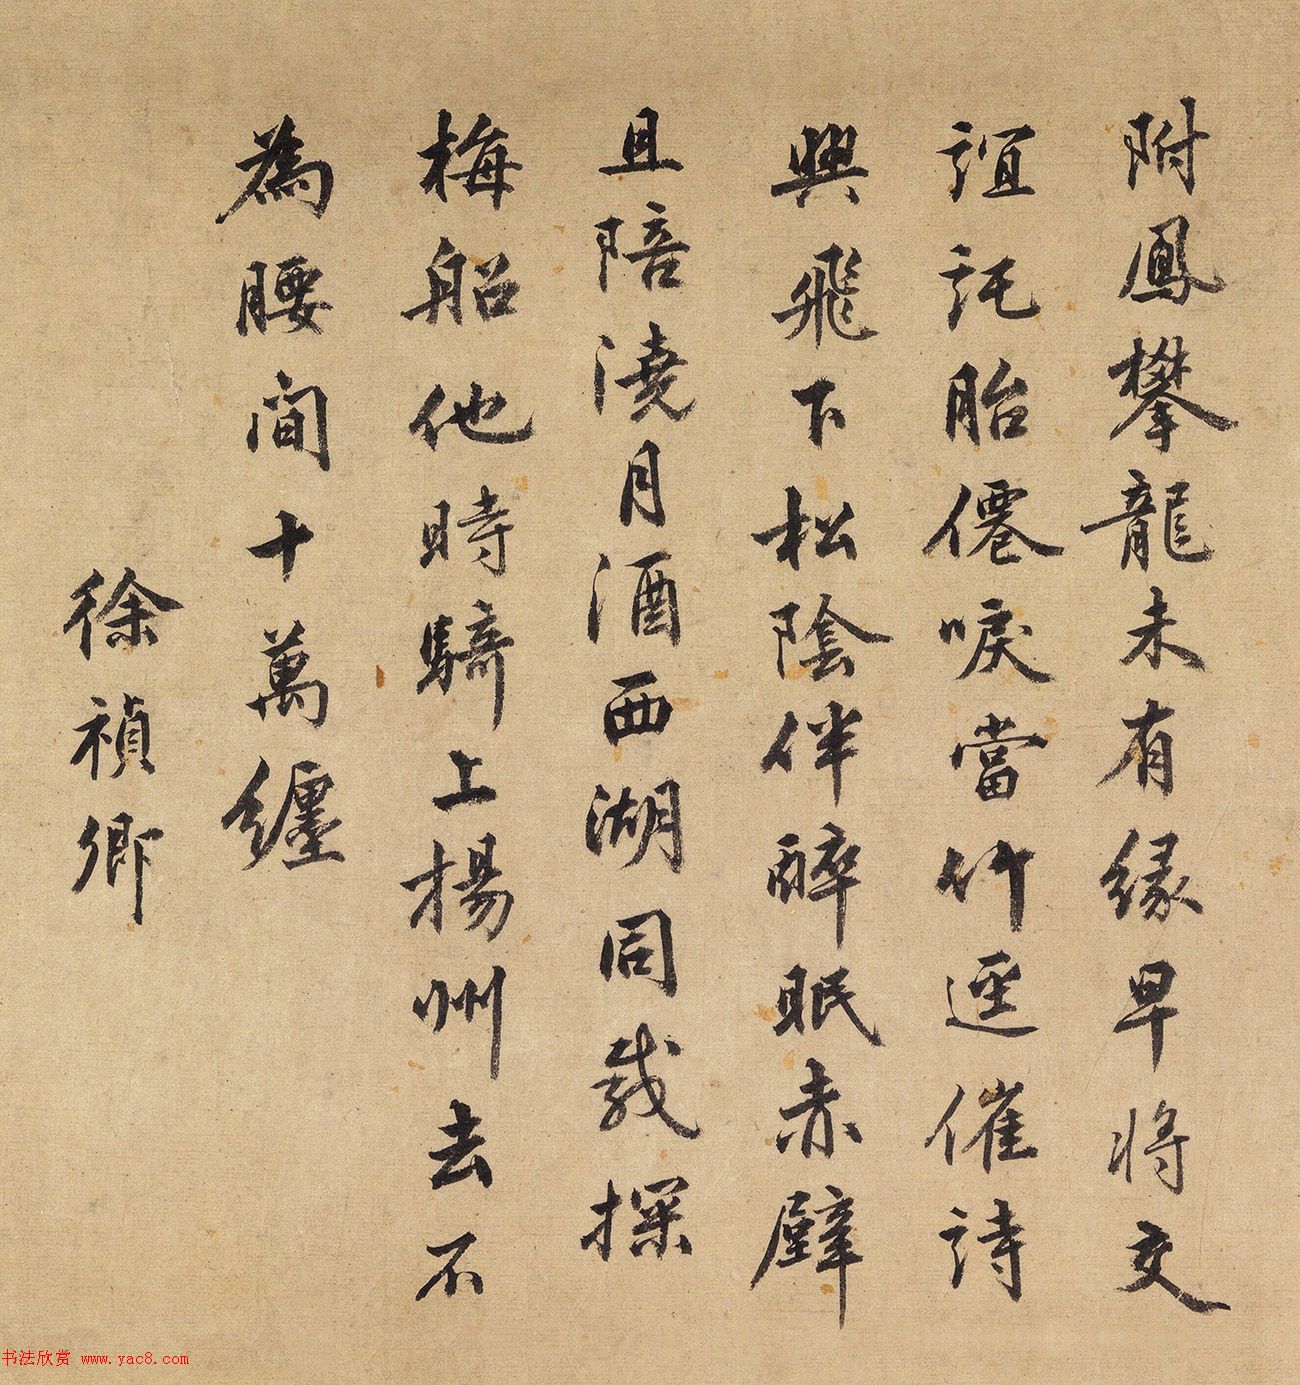 附鳳攀龍未有緣早將交
誼託胎僊唳當竹逕催詩
興飛下松陰伴醉眠赤壁
且陪澆月酒西湖同載探
梅船他時騎上揚州去不
為腰間十萬纏
徐禎卿
书法欣赏 www.yac8.com